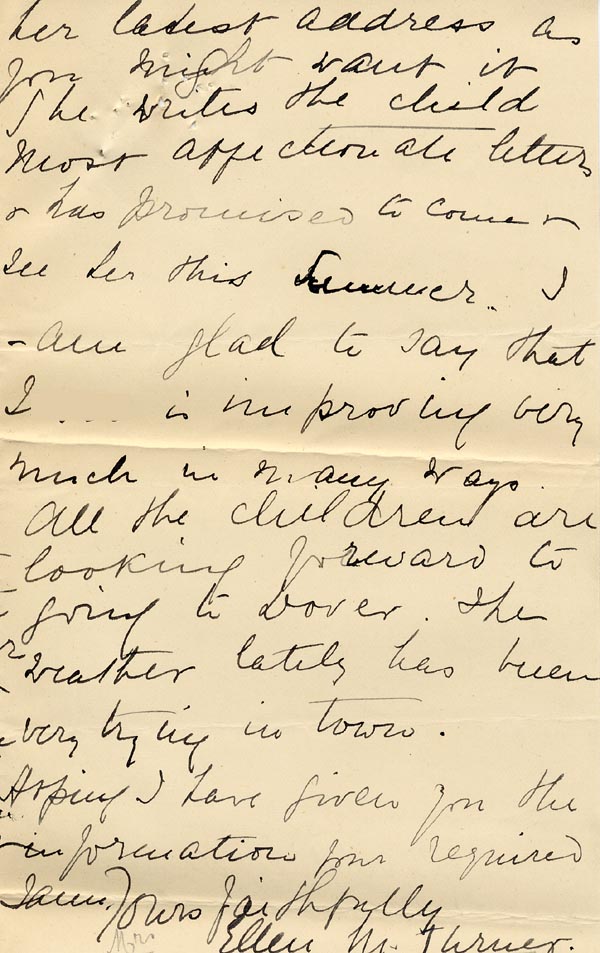 her latest address as
you might want it
She writes the child
most affectionate letters
& has promised to come &
see her this Summer. I
am glad to say that
I .... is improving very
much in many ways.
All the children are
looking forward to
going to Dover. The
weather lately has been
very trying in town.
Hoping I have given you the
information you required
I am, Yours faithfully
Ellen M. Turner.
Mrs